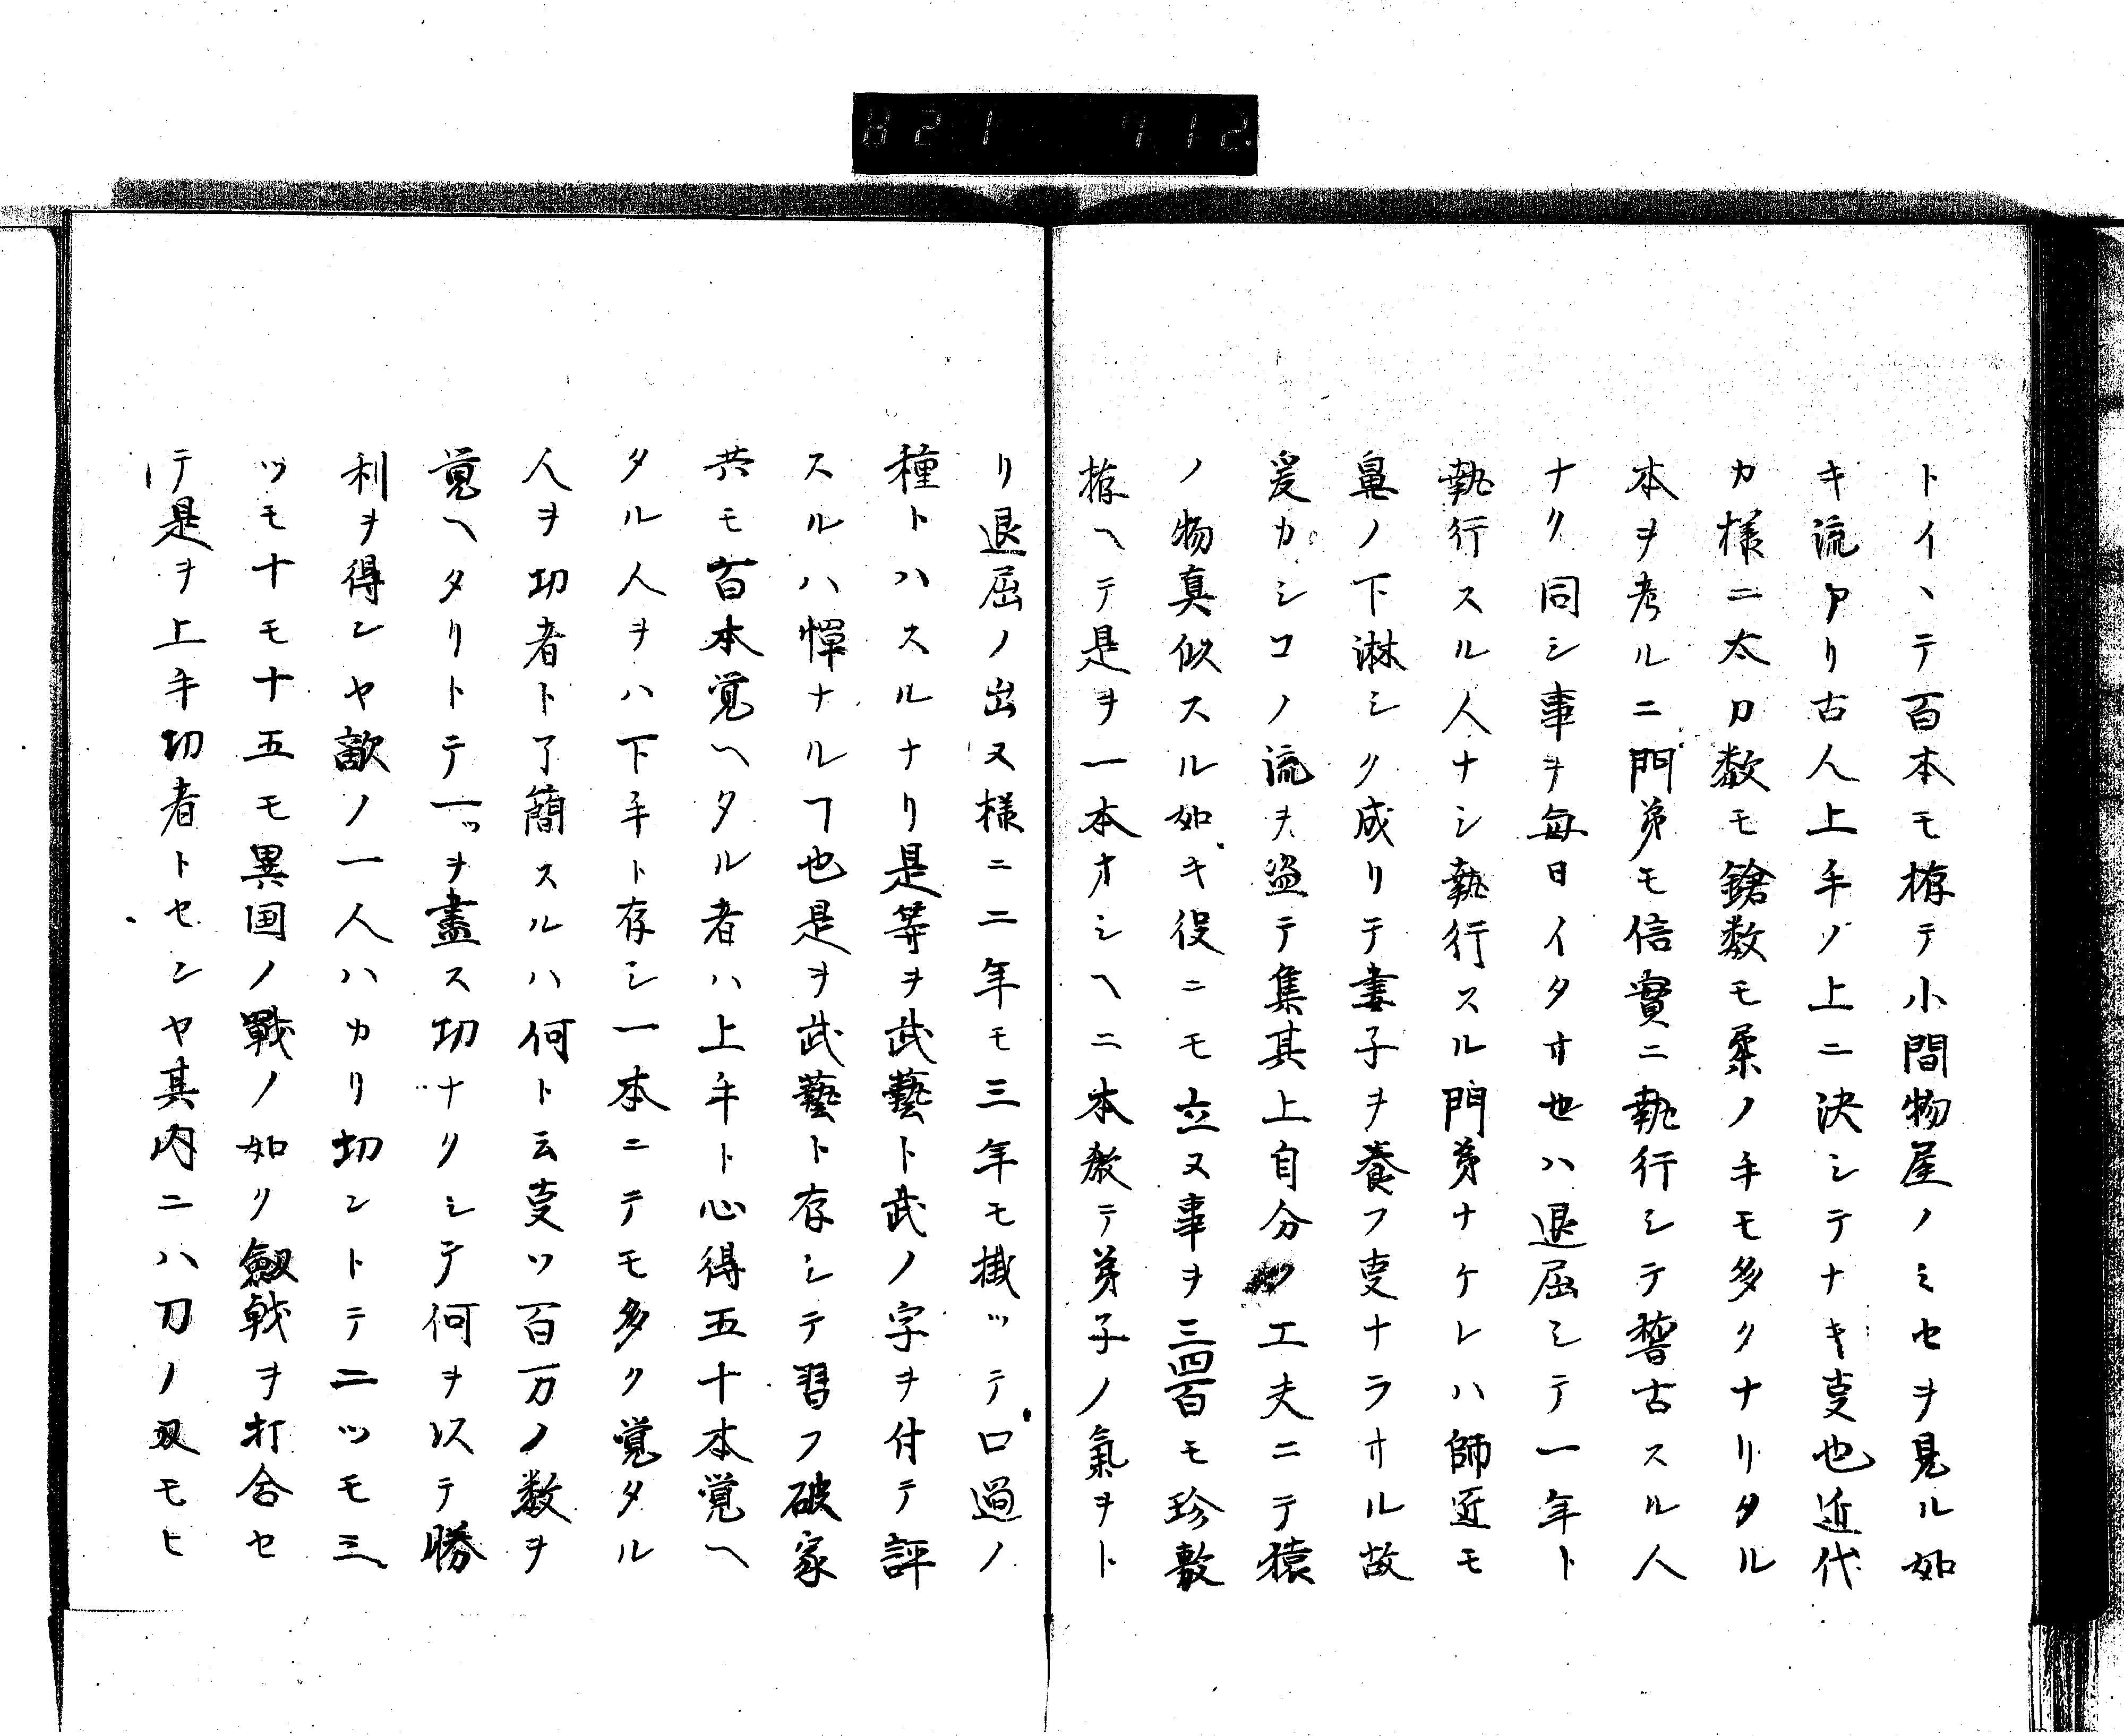 821 712.
トイヽテ百本モ拵テ小間物屋ノミセヲ見ル如
キ流アリ古人上手ノ上ニ決シテナキ㕝也近代
カ様ニ太刀数モ鎗数モ柔ノ手モ多クナリタル
本ヲ考ルニ門弟モ信實ニ執行シテ稽古スル人
ナク同シ事ヲ毎日イタサセハ退屈シテ一年ト
執行スル人ナシ執行スル門弟ナケレハ師匠モ
鼻ノ下淋シク成リテ妻子ヲ養フ㕝ナラサル故
爰カシコノ流ヲ盗テ集其上自分ノ工夫ニテ猿
ノ物真似スル如キ役ニモ立ヌ事ヲ三四百モ珍敷
拵ヘテ是ヲ一本オシヘ二本教テ弟子ノ氣ヲト
リ退屈ノ出ヌ様ニ二年モ三年モ掛ッテ口過ノ
種トハスルナリ是等ヲ武藝ト武ノ字ヲ付テ評
スルハ憚ナルヿ也是ヲ武藝ト存シテ習フ破家
共モ百本覚ヘタル者ハ上手ト心得五十本覚ヘ
タル人ヲハ下手ト存シ一本ニテモ多ク覚タル
人ヲ切者ト了簡スルハ何ト云㕝ソ百万ノ数ヲ
覚ヘタリトテ一ッヲ盡ス切ナクシテ何ヲ以テ勝
利ヲ得ンヤ敵ノ一人ハカリ切ントテ二ツモ三
ツモ十モ十五モ異国ノ戰ノ如ク劔戟ヲ打合セ
テ是ヲ上手切者トセンヤ其内ニハ刀ノ刄モヒ